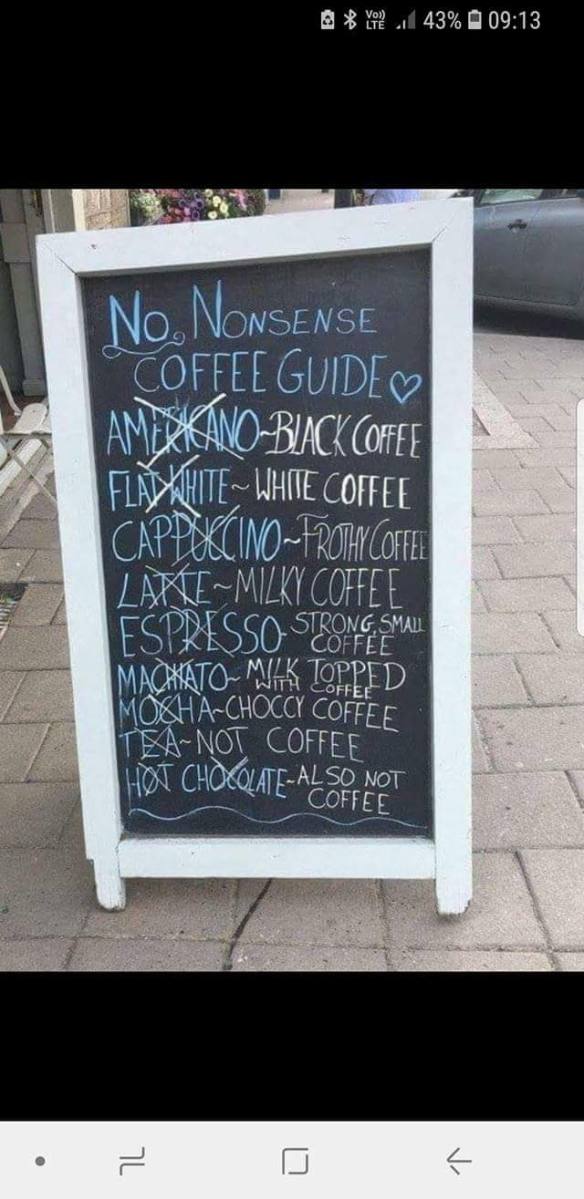 Vo)) LTE 43% 09:13
No Nonsense
COFFEE GUIDE
AMERICANO~BLACK COFFEE
FLAT WHITE~WHITE COFFEE
CAPPUCCINO~FROTHY COFFEE
LATTE~MILKY COFFEE
ESPRESSO-STRONG, SMALL
COFFEE
MACHIATO~MILK TOPPED
WITH COFFEE
MOCHA~CHOCCY COFFEE
TEA~NOT COFFEE
HOT CHOCOLATE-ALSO NOT
COFFEE